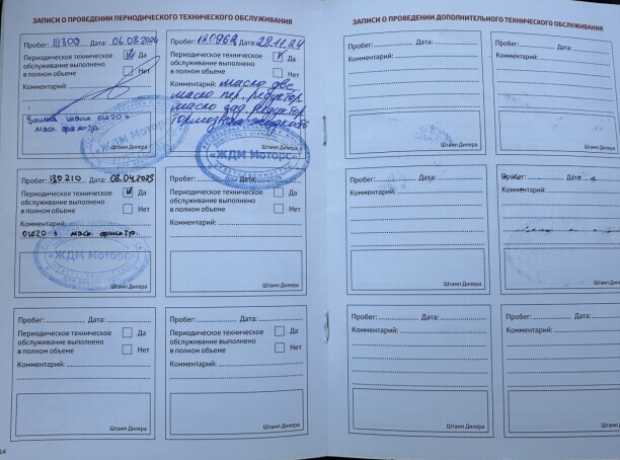 ЗАПИСИ О ПРОВЕДЕНИИ ПЕРИОДИЧЕСКОГО ТЕХНИЧЕСКОГО ОБСЛУЖИВАНИЯ
Пробег: 111300 Дата: 06.08.2024
Периодическое техническое обслуживание выполнено в полном объеме
Да
Нет
Комментарий:
0W20
масл. фильтр.
Штамп Дилера
Пробег: Дата: 28.11.24
Периодическое техническое обслуживание выполнено в полном объеме
Да
Нет
Комментарий: масло двс
масло пер. редуктор
масло зад. редуктор
тормозная жидкость
«ЖДМ Моторс»
Штамп Дилера
Пробег: 130210 Дата: 08.04.2025
Периодическое техническое
обслуживание выполнено
в полном объеме
Да
Нет
Комментарий:
0W20 + масл. фильтр.
«ЖДМ Моторс»
Штамп Дилера
Пробег: Дата:
Периодическое техническое
обслуживание выполнено
в полном объеме
Да
Нет
Комментарий:
Штамп Дилера
Пробег: Дата:
Периодическое техническое
обслуживание выполнено
в полном объеме
Да
Нет
Комментарий:
Штамп Дилера
Пробег: Дата:
Периодическое техническое
обслуживание выполнено
в полном объеме
Да
Нет
Комментарий:
Штамп Дилера
14
ЗАПИСИ О ПРОВЕДЕНИИ ДОПОЛНИТЕЛЬНОГО ТЕХНИЧЕСКОГО ОБСЛУЖИВАНИЯ
Пробег: Дата:
Комментарий:
Штамп Дилера
Пробег: Дата:
Комментарий:
Штамп Дилера
Пробег: Дата:
Комментарий:
Штамп Дилера
Пробег: Дата:
Комментарий:
Штамп Дилера
Пробег: Дата:
Комментарий:
Штамп Дилера
Пробег: Дата:
Комментарий:
Штамп Дилера